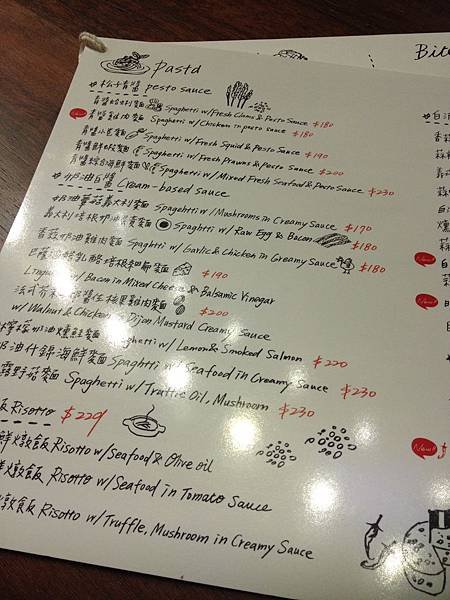 pasta
松子青醬 pesto sauce
青醬蛤蜊麵 Spaghetti w/Fresh Clams & Pesto Sauce $180
青醬雞肉麵 Spaghetti w/Chicken in pesto sauce $180
青醬小卷麵 Spaghetti w/Fresh Squid & Pesto Sauce $190
青醬鮮蝦麵 Spaghetti w/Fresh Prawns & Pesto Sauce $200
青醬綜合海鮮麵 Spaghetti w/Mixed Fresh Seafood & Pesto Sauce $230
奶油白醬 Cream-based sauce
奶油蘑菇義大利麵 Spagehtti w/Mushrooms in Creamy Sauce $170
義大利培根奶油蛋黃麵 Spaghetti w/ Raw Egg & Bacon $180
香蒜奶油雞肉麵 Spaghtti w/ Garlic & Chicken in Creamy Sauce $180
巴薩米醋乳酪培根細扁麵 $190
Linguine w/Bacon in Mixed Cheese & Balsamic Vinegar
法式芥末奶醬佐核果雞肉麵 $200
w/ Walnut & Chicken in Dijon Mustard Creamy Sauce
檸檬奶油燻鮭麵 Spaghetti w/ Lemon & Smoked Salmon $220
奶油什錦海鮮麵 Spaghtti w/ Seafood in Creamy Sauce $230
露野菇麵 Spaghetti w/ Truffle Oil, Mushroom $230
飯 Risotto $229
鮮燉飯 Risotto w/Seafood & Olive oil
鮮燉飯 Risotto w/Seafood in Tomato Sauce
燉飯 Risotto w/Truffle, Mushroom in Creamy Sauce
Bite
白
香
蒜
蒜
白
燻
蒜
New!
New!
New!